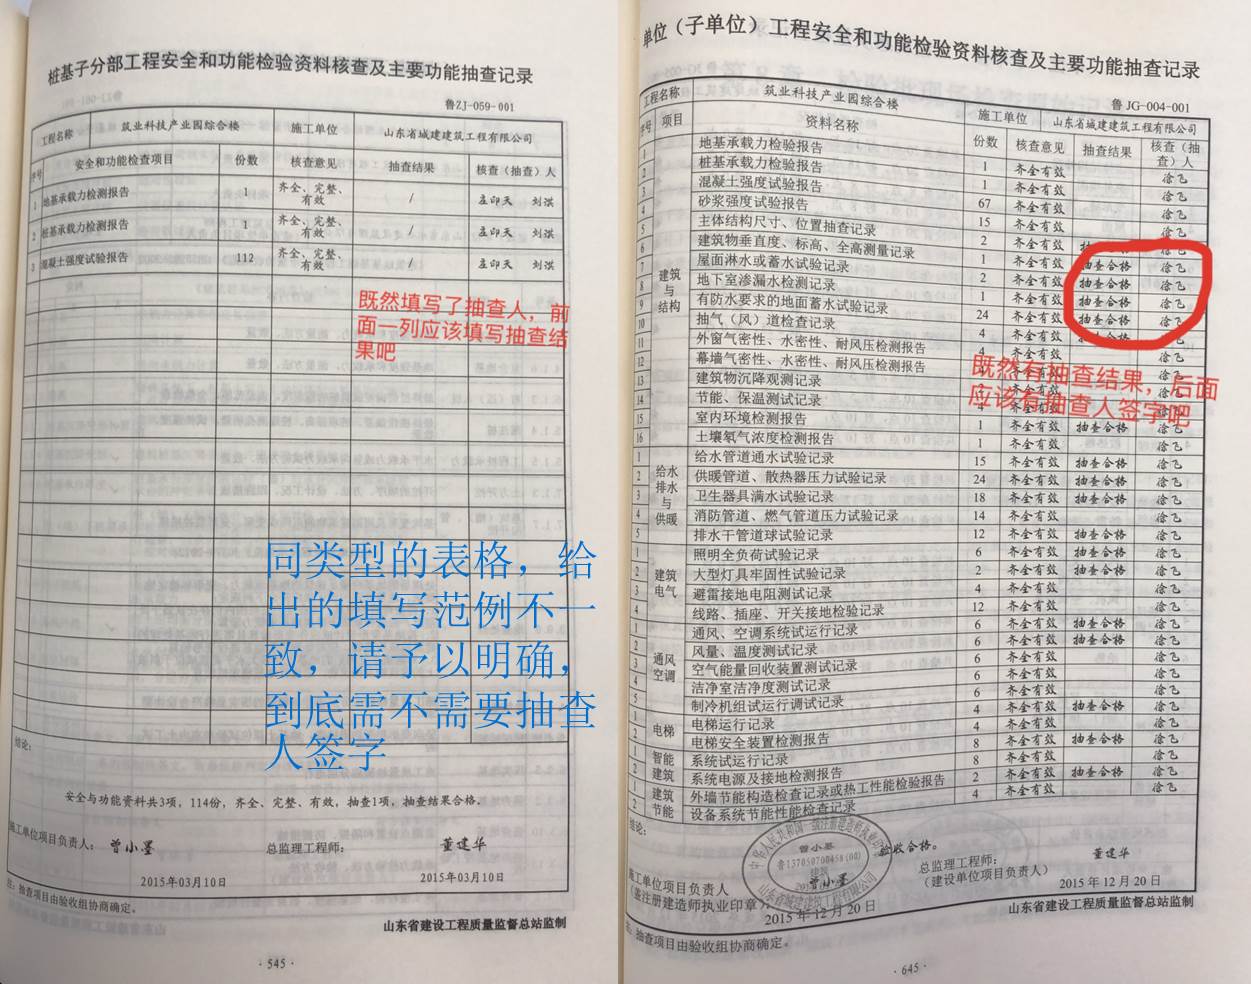 桩基子分部工程安全和功能检验资料核查及主要功能抽查记录
鲁ZJ-059-001
工程名称 筑业科技产业园综合楼 施工单位 山东省城建建筑工程有限公司
序号 安全和功能检查项目 份数 核查意见 抽查结果 核查（抽查）人
1 地基承载力检测报告 1 齐全、完整、有效 / 孟印天 刘淇
2 桩基承载力检测报告 1 齐全、完整、有效 / 孟印天 刘淇
3 混凝土强度试验报告 112 齐全、完整、有效 / 孟印天 刘淇
既然填写了抽查人，前
面一列应该填写抽查结
果吧
同类型的表格，给
出的填写范例不一
致，请予以明确，
到底需不需要抽查
人签字
结论：
安全与功能资料共3项，114份，齐全、完整、有效，抽查1项，抽查结果合格。
施工单位项目负责人： 曾小墨 总监理工程师： 董建华
2015年03月10日 2015年03月10日
注：抽查项目由验收组协商确定。
山东省建设工程质量监督总站监制
·545·
单位（子单位）工程安全和功能检验资料核查及主要功能抽查记录
鲁JG-004-001
工程名称 筑业科技产业园综合楼 施工单位 山东省城建建筑工程有限公司
序号 项目 资料名称 份数 核查意见 抽查结果 核查（抽查）人
建筑与结构
1 地基承载力检验报告 1 齐全有效 徐飞
2 桩基承载力检验报告 1 齐全有效 徐飞
3 混凝土强度试验报告 67 齐全有效 徐飞
4 砂浆强度试验报告 15 齐全有效 徐飞
5 主体结构尺寸、位置抽查记录 2 齐全有效 抽查合格 徐飞
6 建筑物垂直度、标高、全高测量记录 1 齐全有效 抽查合格 徐飞
7 屋面淋水或蓄水试验记录 2 齐全有效 抽查合格 徐飞
8 地下室渗漏水检测记录 1 齐全有效 抽查合格 徐飞
9 有防水要求的地面蓄水试验记录 24 齐全有效 抽查合格 徐飞
10 抽气（风）道检查记录 4 齐全有效 抽查合格 徐飞
11 外窗气密性、水密性、耐风压检测报告 4 徐飞
12 幕墙气密性、水密性、耐风压检测报告 徐飞
13 建筑物沉降观测记录
14 节能、保温测试记录 4 齐全有效 徐飞
15 室内环境检测报告 1 齐全有效 抽查合格 徐飞
16 土壤氡气浓度检测报告 1 齐全有效 徐飞
既然有抽查结果，后面
应该有抽查人签字吧
给水排水与供暖
1 给水管道通水试验记录 15 齐全有效 抽查合格 徐飞
2 供暖管道、散热器压力试验记录 24 齐全有效 抽查合格 徐飞
3 卫生器具满水试验记录 18 齐全有效 抽查合格 徐飞
4 消防管道、燃气管道压力试验记录 14 齐全有效 徐飞
5 排水干管道球试验记录 12 齐全有效 抽查合格 徐飞
建筑电气
1 照明全负荷试验记录 6 齐全有效 抽查合格 徐飞
2 大型灯具牢固性试验记录 2 齐全有效 抽查合格 徐飞
3 避雷接地电阻测试记录 4 齐全有效 徐飞
4 线路、插座、开关接地检验记录 12 齐全有效 徐飞
通风空调
1 通风、空调系统试运行记录 6 齐全有效 抽查合格 徐飞
2 风量、温度测试记录 6 齐全有效 抽查合格 徐飞
3 空气能量回收装置测试记录 6 齐全有效 徐飞
4 洁净室洁净度测试记录 6 齐全有效 徐飞
5 制冷机组试运行调试记录 6 齐全有效 徐飞
电梯
1 电梯运行记录 4 齐全有效 抽查合格 徐飞
2 电梯安全装置检测报告 4 齐全有效 徐飞
智能建筑
1 系统试运行记录 8 齐全有效 抽查合格 徐飞
2 系统电源及接地检测报告 8 齐全有效 徐飞
建筑节能
1 外墙节能构造检查记录或热工性能检验报告 2 齐全有效 抽查合格 徐飞
2 设备系统节能性能检查记录 4 齐全有效 徐飞
结论：
验收合格。
施工单位项目负责人
（签注册建造师执业印章）： 曾小墨
2015年12月20日
总监理工程师：
（建设单位项目负责人） 董建华
2015年12月20日
注：抽查项目由验收组协商确定。
山东省建设工程质量监督总站监制
·645·